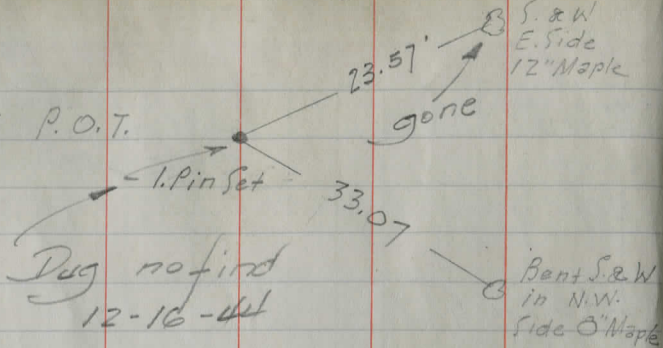 S. & W
E. Side
12" Maple
23.57'
gone
P.O.T.
I. Pin Set
33.07
Dug no find
12-16-44
Bent S. & W
in N.W.
Side 8" Maple